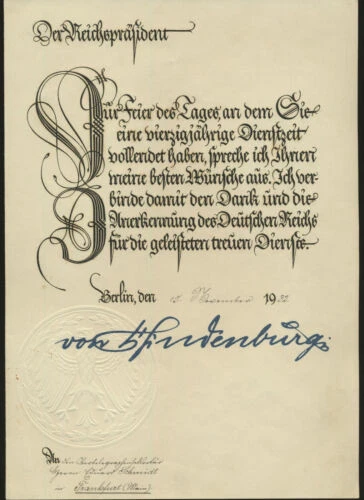 Der Reichspräsident
Zur Feier des Tages, an dem Sie
eine vierzigjährige Dienstzeit
vollendet haben, spreche ich Ihnen
meine besten Wünsche aus. Ich ver-
binde damit den Dank und die
Anerkennung des Deutschen Reichs
für die geleisteten treuen Dienste.
Berlin, den 15. November 1932
von Hindenburg
An den Obertelegraphensekretär
Herrn Eduard Schmidt
in Frankfurt (Main)